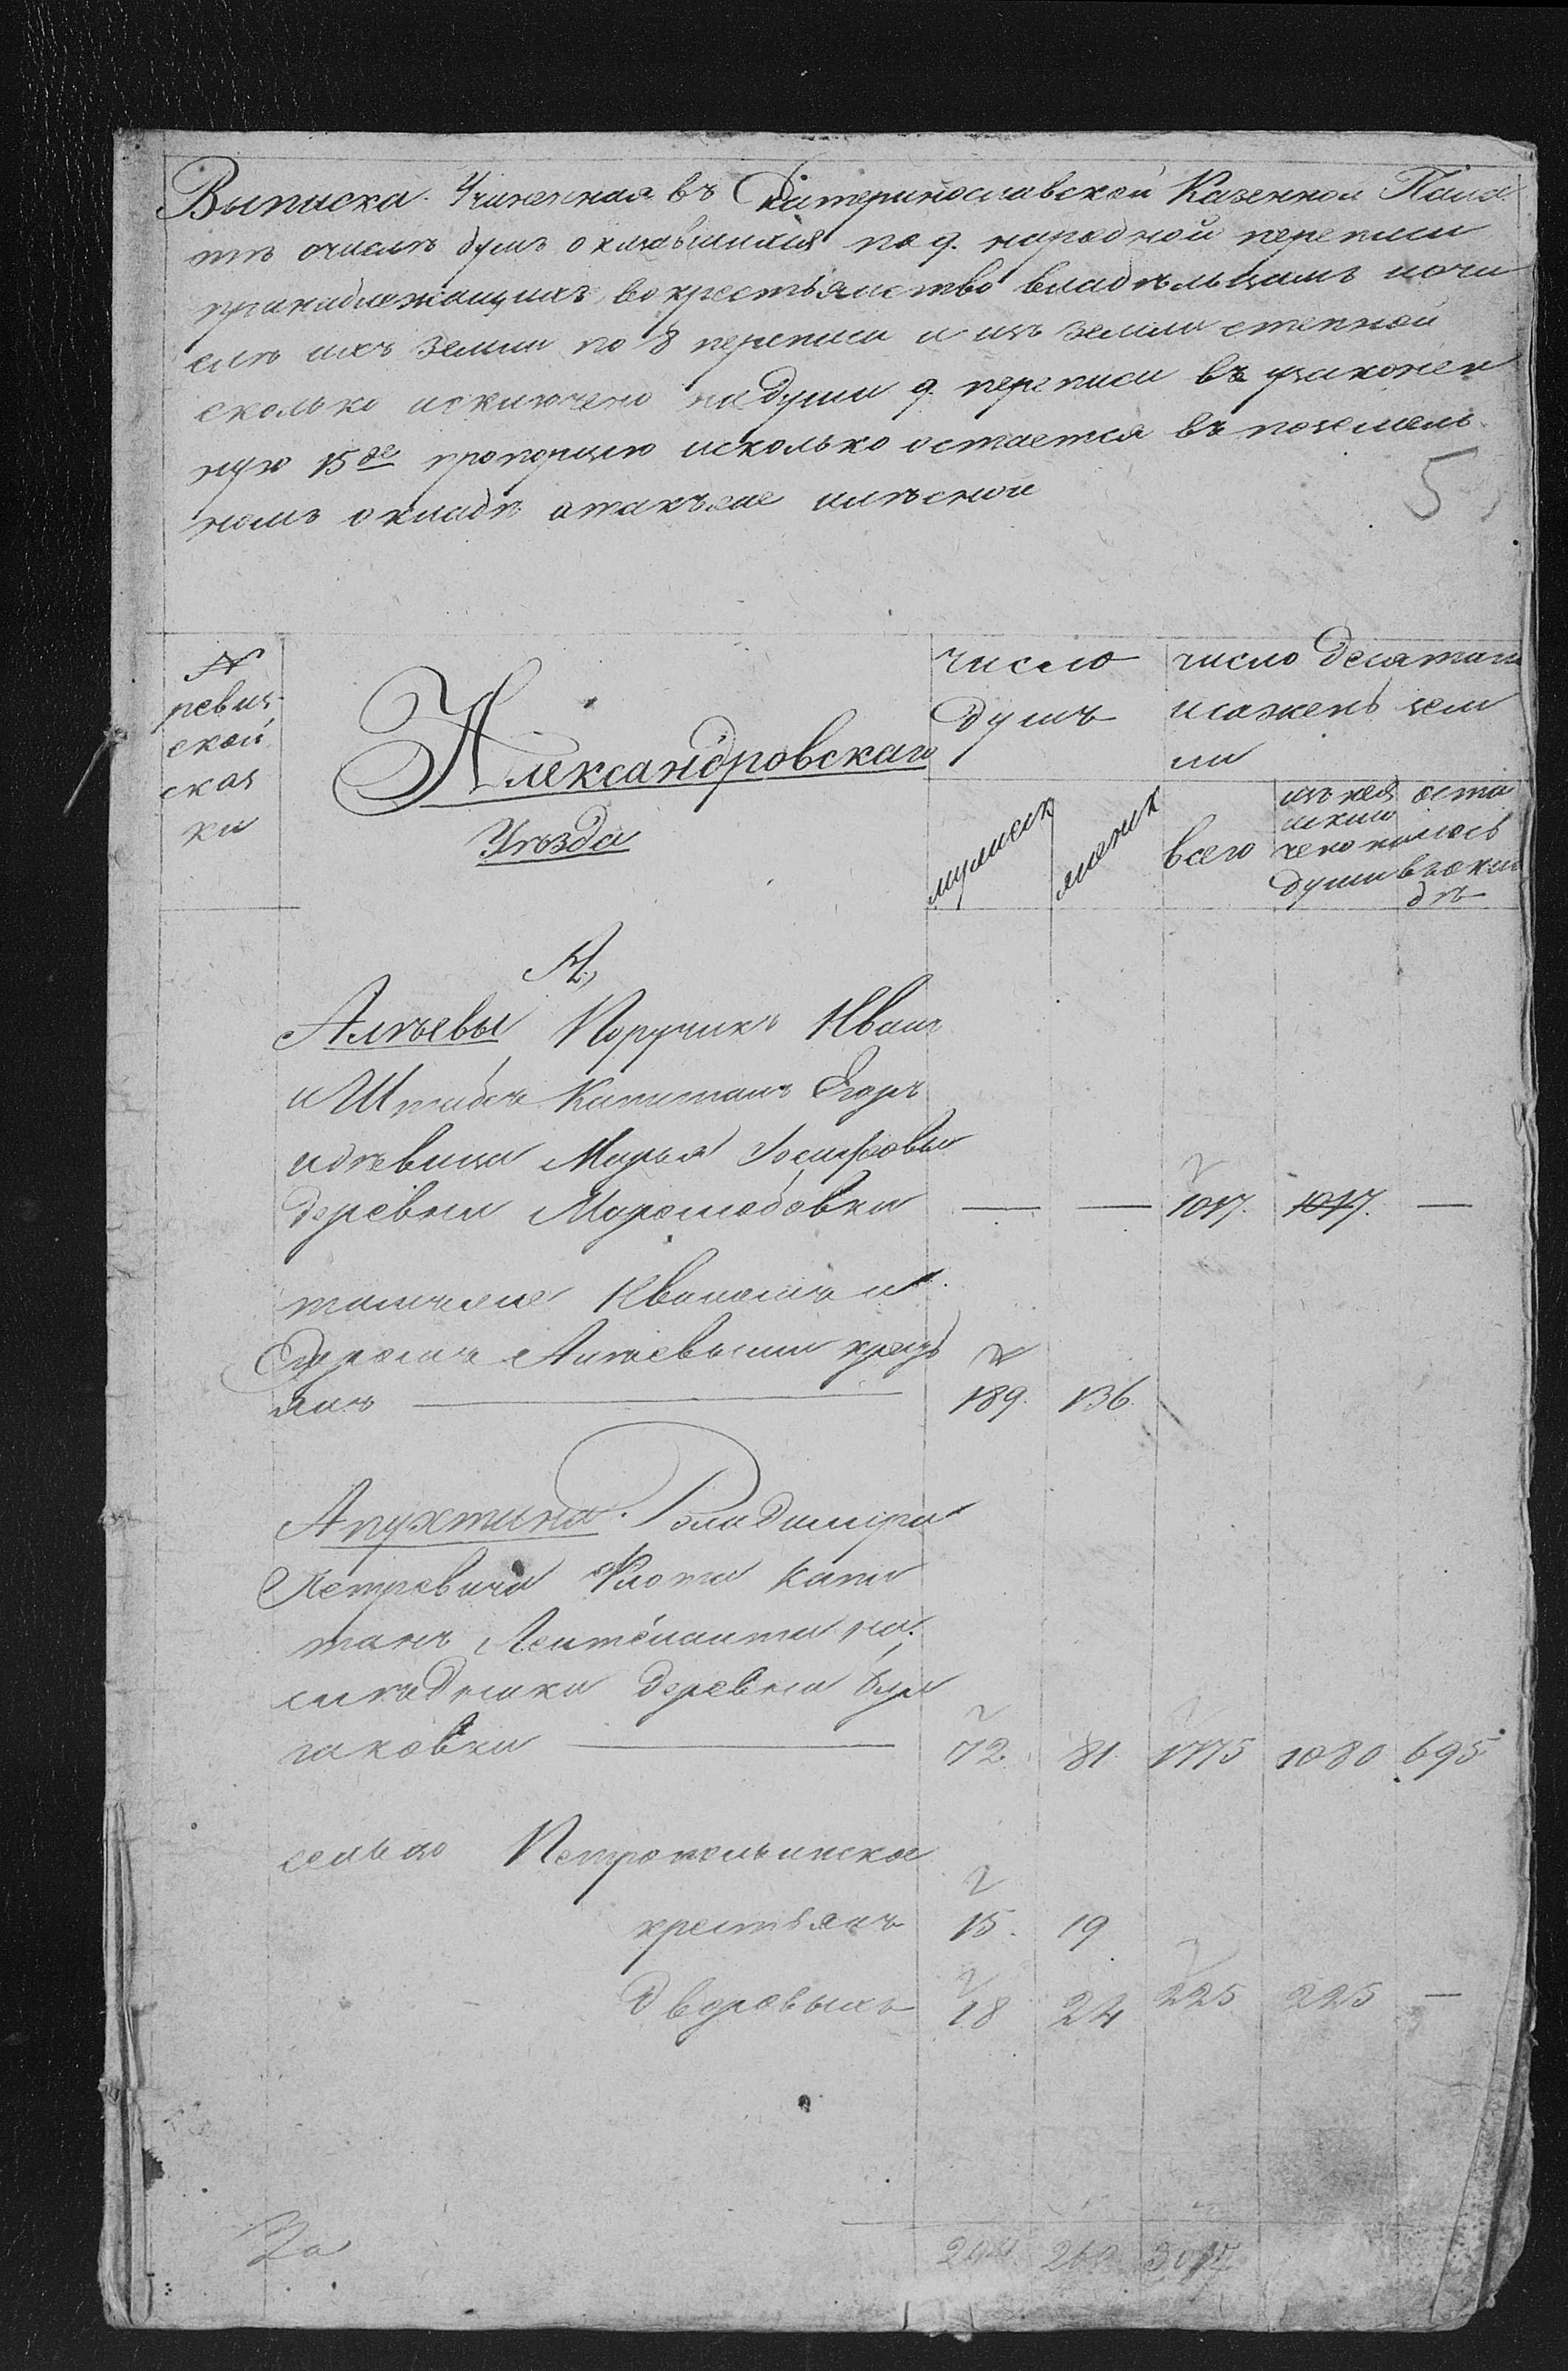 Выписка. Учиненная въ Екатеринославской Казенной Пала
тѣ очислѣ душъ оказавшихся по 9. народной переписи
принадлежащихъ вокрестьянство владѣльцамъ ночи
слѣ ихъ земли по 8 переписи и изъ земли степной
сколько исключено надуши 9. переписи въ узаконен
ную 15 де пропорцію исколько остается въ поземель
номъ окладѣ атакъже илѣсной
5
№ ревиз
ской
сказ
ки
Александровскаго
Уѣзда
число
душъ
число десятин
исажень зем
ли
мужеск
женск
всего
изъ нея
исклю
чено на
души
оста
лось
въокла
дѣ
А,
Алѣевы Поручикъ Иванъ
и Штабсъ Капитанъ Егоръ
идѣвица Марья Іосифовы
деревни Маролюбовки — — 1047. 1047. —
тамъже Иваномъ и
Егоромъ Алѣевыми крест
янъ — 189. 136.
Апухтина. Владимира
Петровича Флота Капи
танъ Лейтенанта на
слѣдники деревни Бул
гаковки — 72. 81. 1775 1080 695
сельцо
крестьянъ 15. 19
дворовыхъ 18 24 225 225 —
За
294. 260 3047